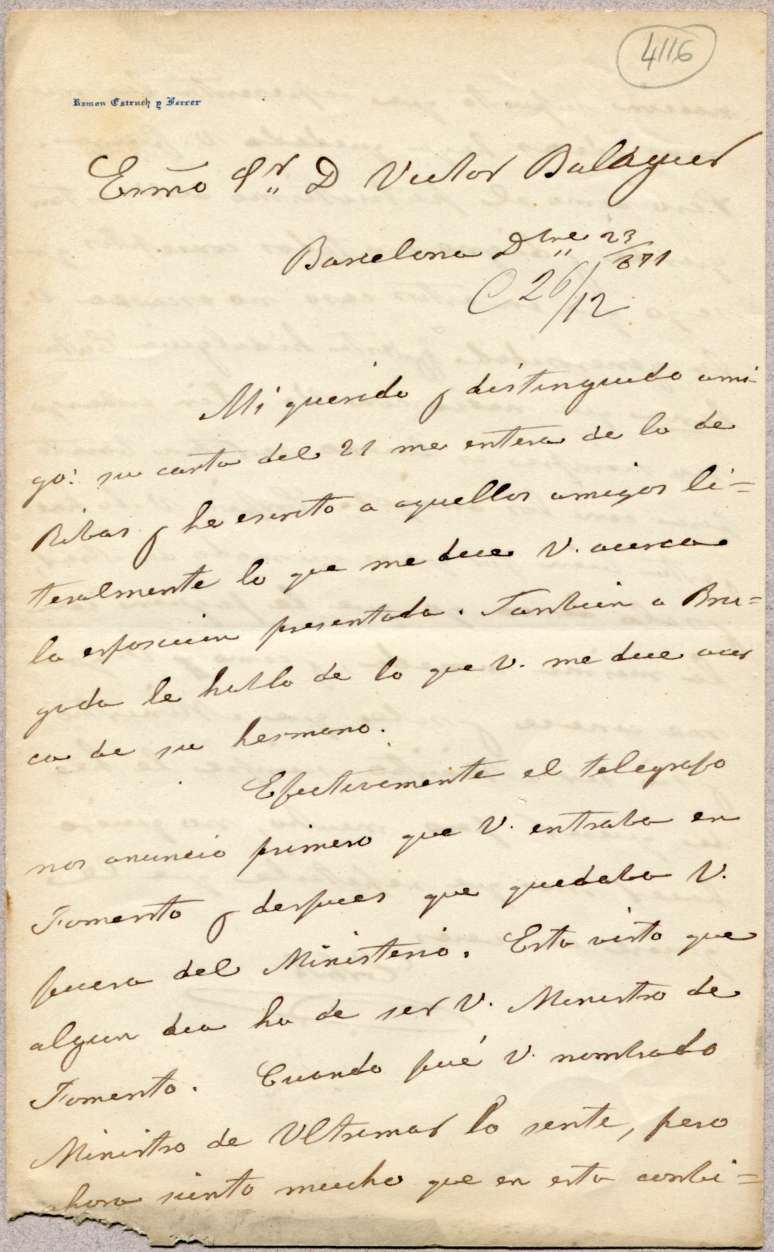 4116
Ramon Estruch y Ferrer
Exmo Sr. D Victor Balaguer
Barcelona Dbre 23/871
C 26/12
Mi querido y distinguido ami-
go: su carta del 21 me entera de lo de
Ribas y he escrito a aquellos amigos li=
teralmente lo que me dice V. acerca
la esposicion presentada. Tambien a Bru=
gada le hablo de lo que V. me dice acer
ca de su hermano.
Efectivamente el telegrafo
nos anuncio primero que V. entraba en
Fomento y despues que quedaba V.
fuera del Ministerio. Esta visto que
algun dia ha de ser V. Ministro de
Fomento. Cuando fué V. nombrado
Ministro de Ultramar lo sente, pero
hora siento mucho que en esta combi=